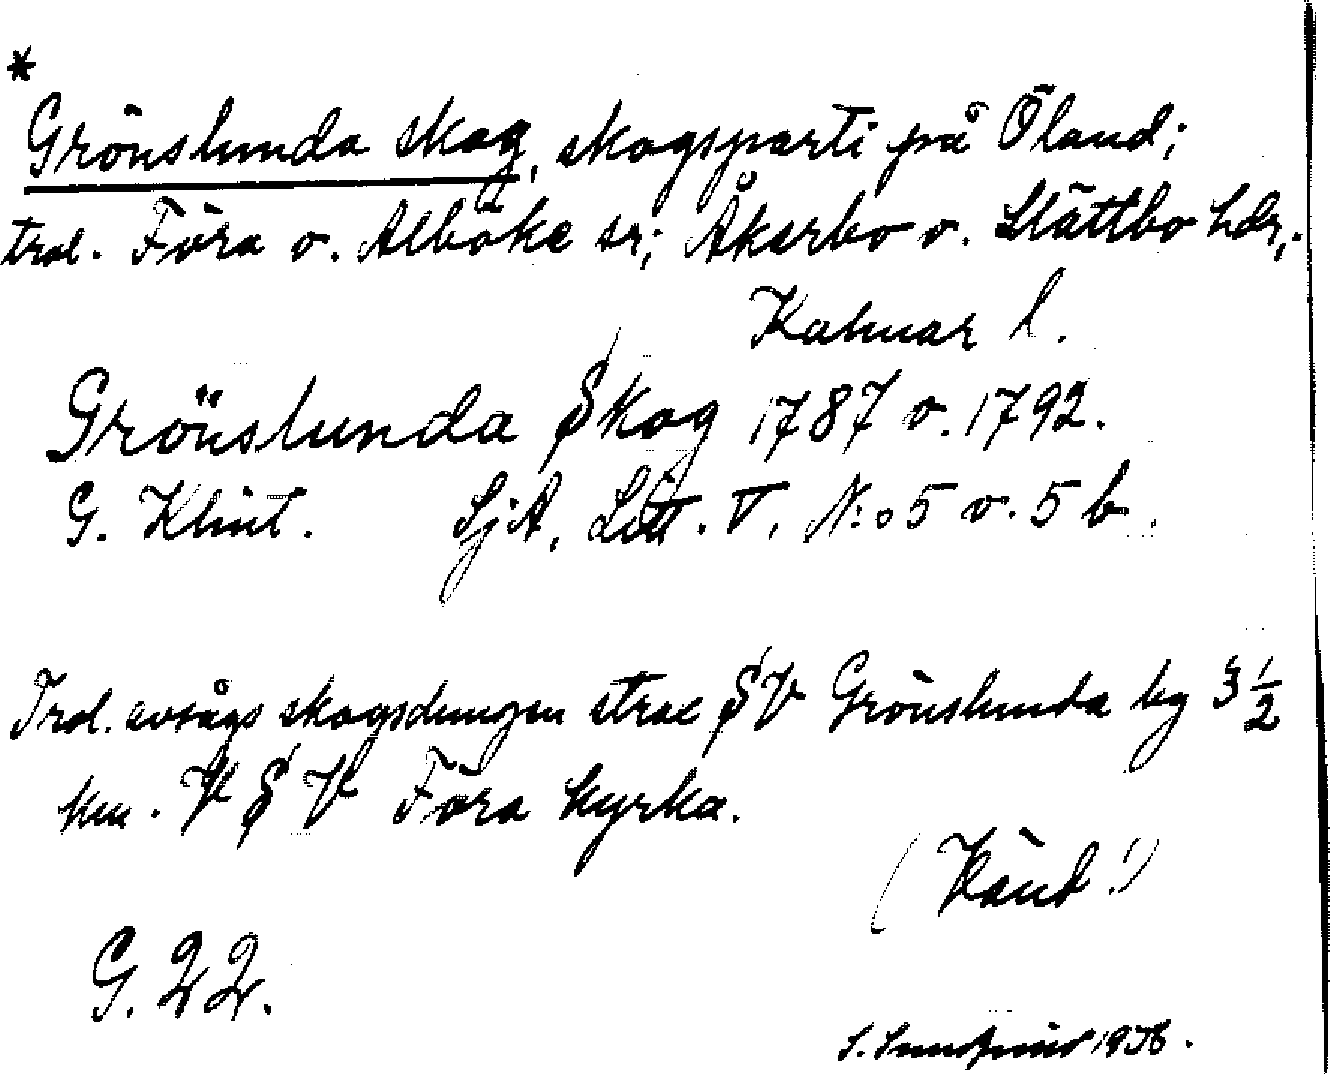 *
Grönslunda skog, skogsparti på Öland;
trol. Föra o. Alböke sr; Åkerbo o. Slättbo hdr,.
Kalmar l.
Grönslunda Skog 1787 o. 1792.
G. Klint. SjA, Litt. V, N:o 5 o. 5 b.
Trol. avsågs skogsdungen strax SV Grönslunda by 3 1/2
km. V S V Föra kyrka.
(Känt!)
G. 22.
S. 19